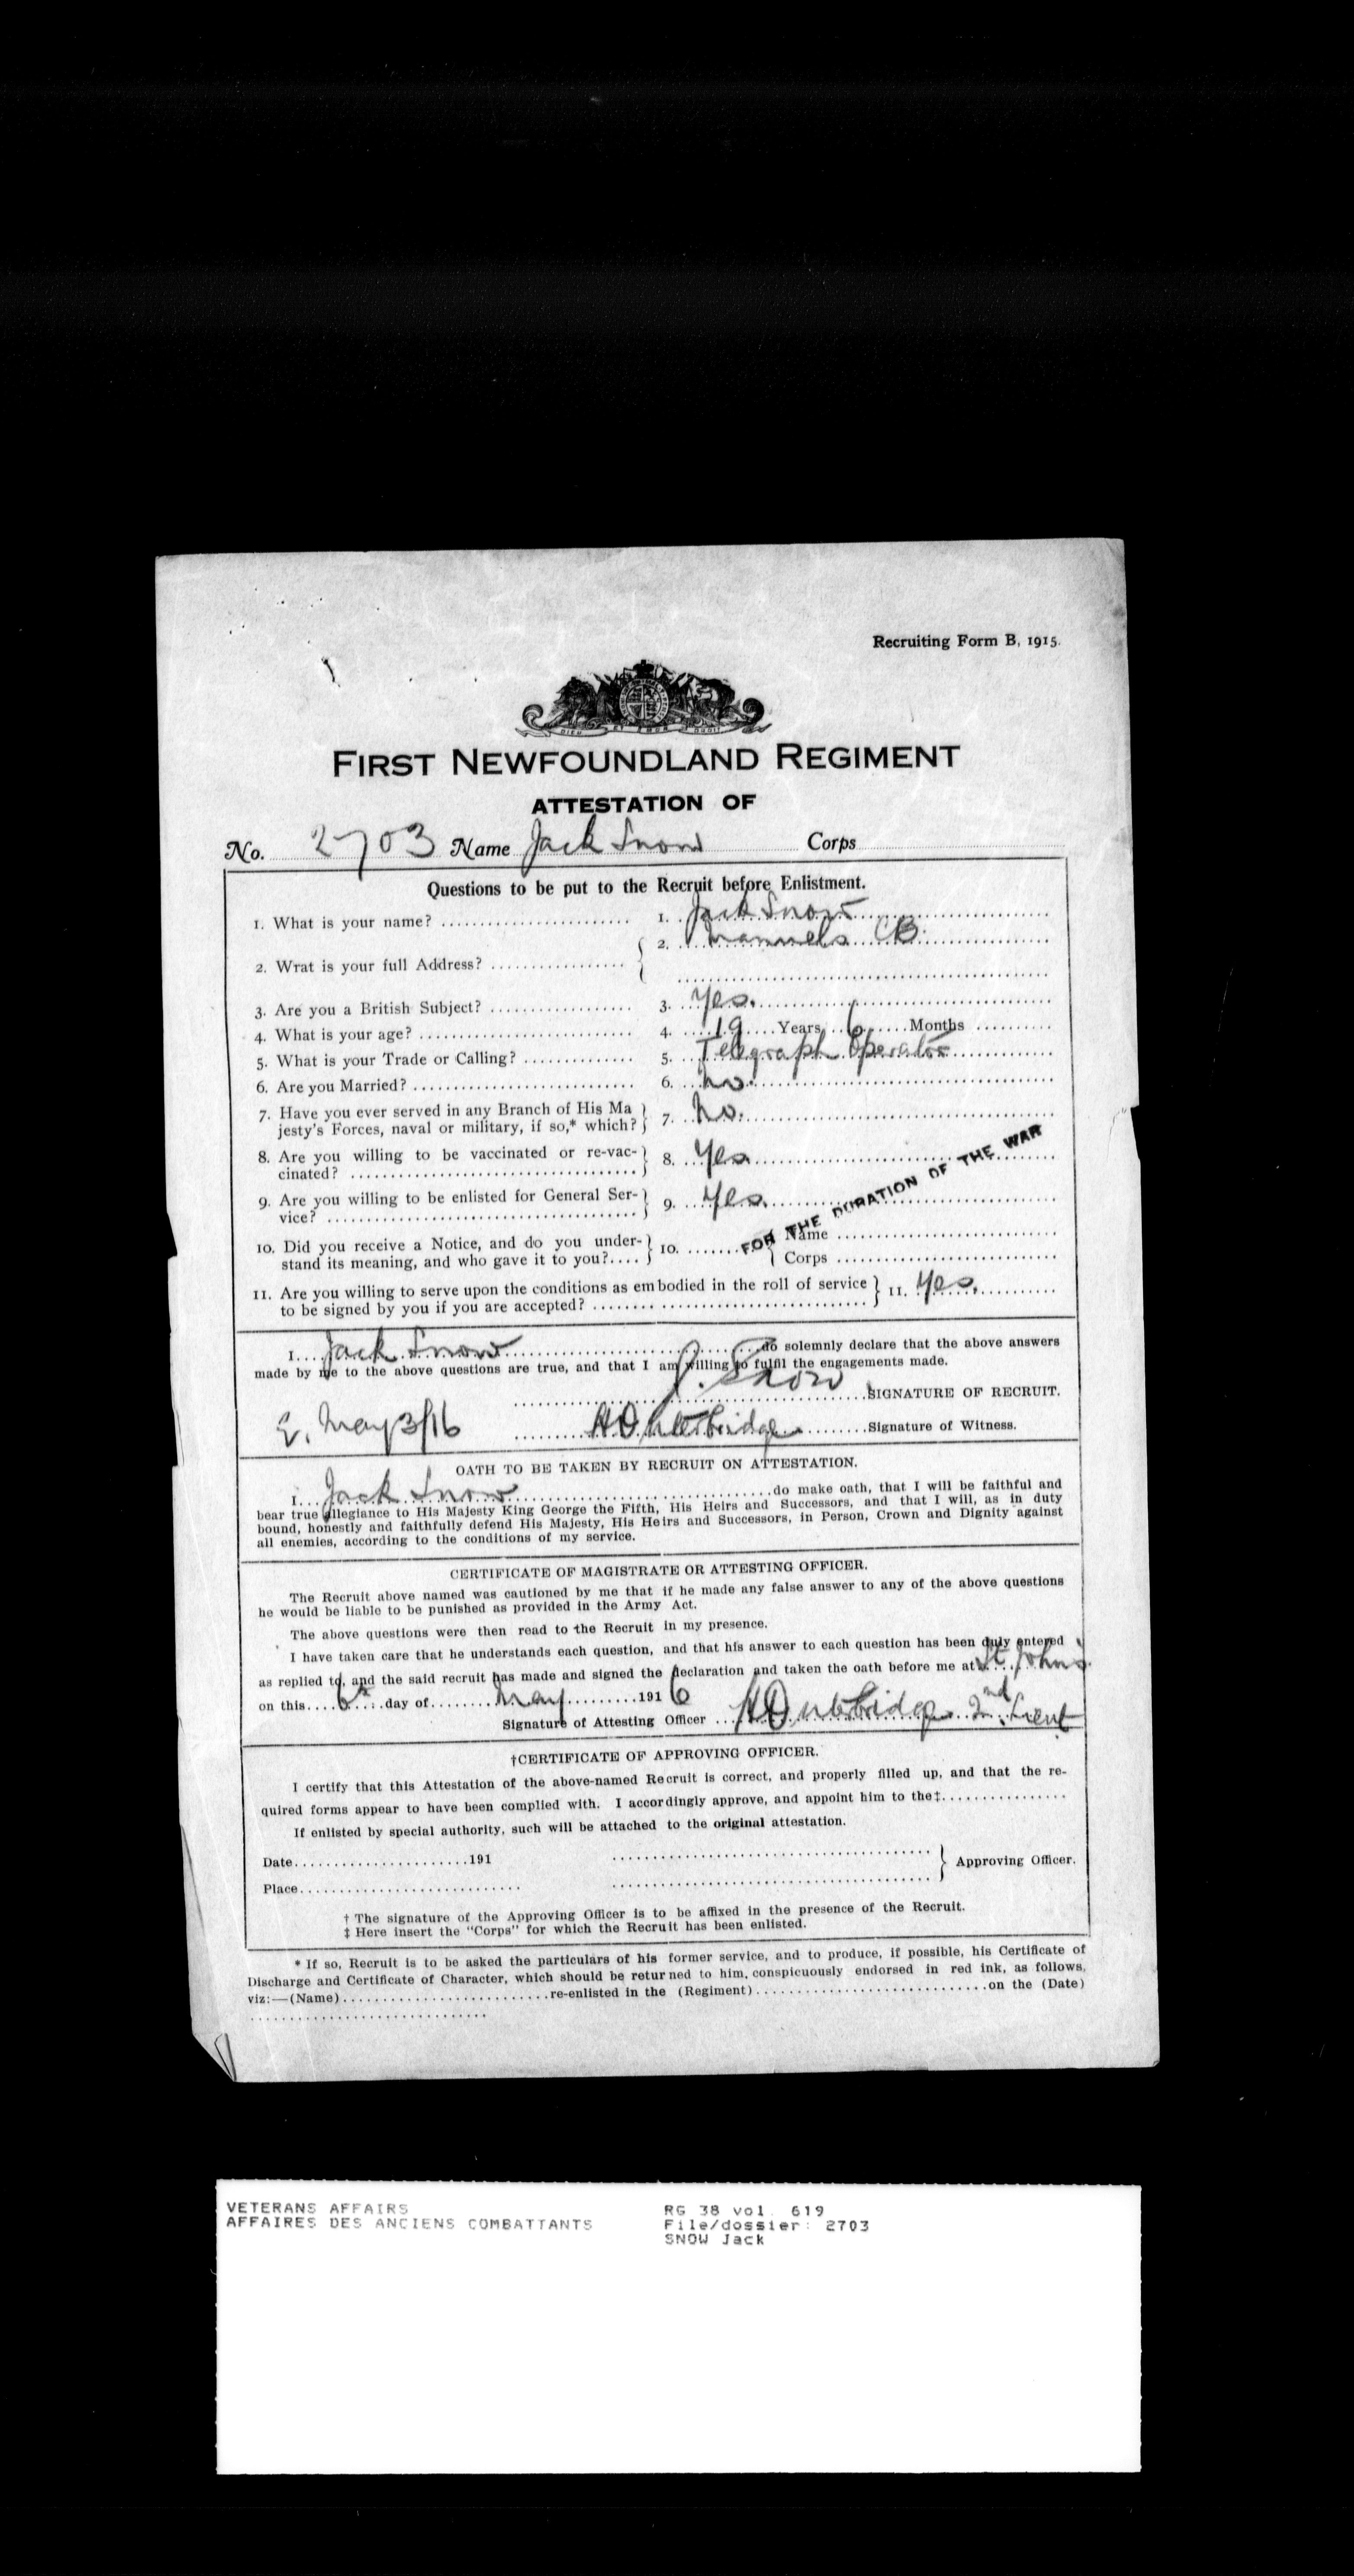 Recruiting Form B, 1915.
DIEU ET MON DROIT
FIRST NEWFOUNDLAND REGIMENT
ATTESTATION OF
No. 2703 Name Jack Snow Corps
Questions to be put to the Recruit before Enlistment.
1. What is your name? 1. Jack Snow
2. Wrat is your full Address? 2. Manuels CB.
3. Are you a British Subject? 3. Yes.
4. What is your age? 4. 19 Years 6 Months
5. What is your Trade or Calling? 5. Telegraph Operator
6. Are you Married? 6. No.
7. Have you ever served in any Branch of His Ma
jesty's Forces, naval or military, if so,* which? 7. No.
8. Are you willing to be vaccinated or re-vac-
cinated? 8. Yes
9. Are you willing to be enlisted for General Ser-
vice? 9. Yes.
FOR THE DURATION OF THE WAR
10. Did you receive a Notice, and do you under-
stand its meaning, and who gave it to you?.... 10. Name
Corps
11. Are you willing to serve upon the conditions as embodied in the roll of service
to be signed by you if you are accepted? 11. Yes.
I Jack Snow do solemnly declare that the above answers
made by me to the above questions are true, and that I am willing to fulfil the engagements made.
J. Snow SIGNATURE OF RECRUIT.
E. May 3/16 H Outerbridge Signature of Witness.
OATH TO BE TAKEN BY RECRUIT ON ATTESTATION.
I Jack Snow do make oath, that I will be faithful and
bear true allegiance to His Majesty King George the Fifth, His Heirs and Successors, and that I will, as in duty
bound, honestly and faithfully defend His Majesty, His Heirs and Successors, in Person, Crown and Dignity against
all enemies, according to the conditions of my service.
CERTIFICATE OF MAGISTRATE OR ATTESTING OFFICER.
The Recruit above named was cautioned by me that if he made any false answer to any of the above questions
he would be liable to be punished as provided in the Army Act.
The above questions were then read to the Recruit in my presence.
I have taken care that he understands each question, and that his answer to each question has been duly entered
as replied to, and the said recruit has made and signed the declaration and taken the oath before me at St. Johns
on this 6th day of May 1916
Signature of Attesting Officer H Outerbridge 2nd Lieut
†CERTIFICATE OF APPROVING OFFICER.
I certify that this Attestation of the above-named Recruit is correct, and properly filled up, and that the re-
quired forms appear to have been complied with. I accordingly approve, and appoint him to the‡
If enlisted by special authority, such will be attached to the original attestation.
Date 191
Approving Officer.
Place
† The signature of the Approving Officer is to be affixed in the presence of the Recruit.
‡ Here insert the "Corps" for which the Recruit has been enlisted.
* If so, Recruit is to be asked the particulars of his former service, and to produce, if possible, his Certificate of
Discharge and Certificate of Character, which should be returned to him, conspicuously endorsed in red ink, as follows,
viz:—(Name) re-enlisted in the (Regiment) on the (Date)
VETERANS AFFAIRS RG 38 vol. 619
AFFAIRES DES ANCIENS COMBATTANTS File/dossier: 2703
SNOW Jack